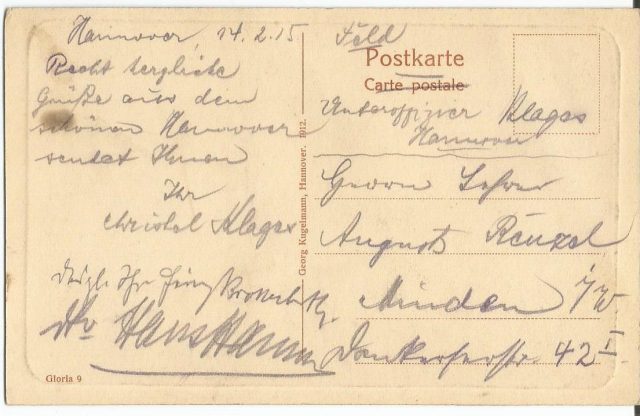 Hannover, 14.2.15
Recht herzliche
Grüße aus dem
schönen Hannover
sendet Ihnen
Ihr
Christel Klages
Feld
Postkarte
Carte postale
Unteroffizier Klages
Hannover
Herrn Lehrer
August Renzel
Minden i/W
Dankersenstr. 42 I
Georg Kugelmann, Hannover. 1912.
Gloria 9